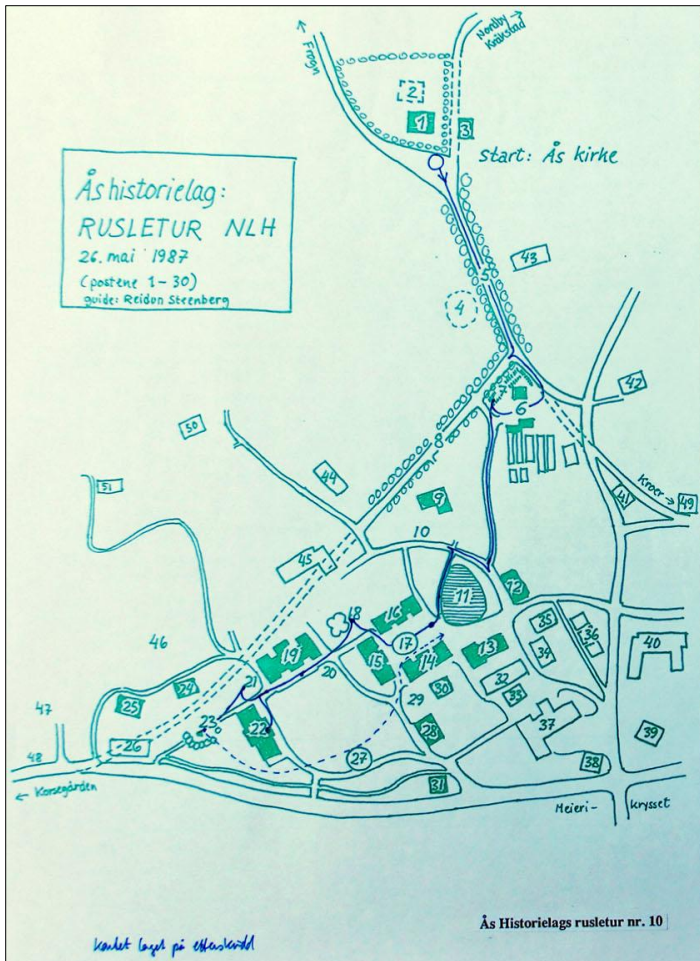 ← Frogn
Nordby →
Kråkstad
2
1
3
start: Ås kirke
Ås historielag:
RUSLETUR NLH
26. mai 1987
(postene 1-30)
guide: Reidun Steenberg
43
5
4
42
7
6
50
8
44
51
9
Kroer →
41
49
10
45
11
12
18
16
35
36
46
17
13
34
40
19
15
14
20
32
21
24
30
33
25
29
47
23
22
28
37
39
26
48
27
38
31
← Korsegården
Meieri-krysset
Ås Historielags rusletur nr. 10
kartet laget på etterskudd